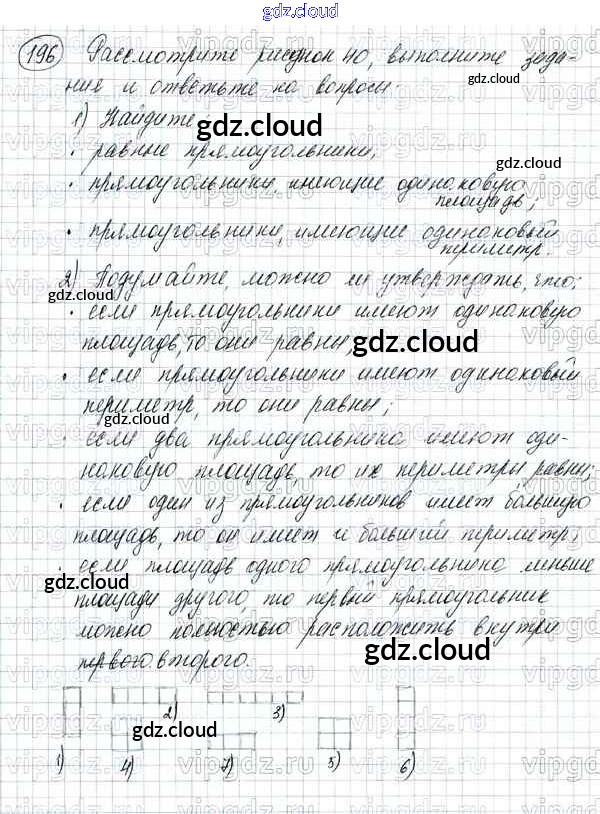 gdz.cloud
196 Рассмотрите рисунок 40, выполните зада-
gdz.cloud
ния и ответьте на вопросы:
1) Найдите
gdz.cloud
· равные прямоугольники;
gdz.cloud
· прямоугольники, имеющие одинаковую
площадь;
gdz.cloud
· прямоугольники, имеющие одинаковый
периметр.
2) Подумайте, можно ли утверждать, что:
gdz.cloud
· если прямоугольники имеют одинаковую
площадь, то они равны;
gdz.cloud
· если прямоугольники имеют одинаковый
периметр, то они равны;
gdz.cloud
· если два прямоугольника имеют оди-
наковую площадь, то их периметры равны;
gdz.cloud
· если один из прямоугольников имеет большую
площадь, то он имеет и больший периметр;
· если площадь одного прямоугольника меньше
gdz.cloud
площади другого, то первый прямоугольник
можно полностью расположить внутри
gdz.cloud
первого второго.
2) 3)
gdz.cloud
1) 4) 7) 5) 6)
gdz.cloud